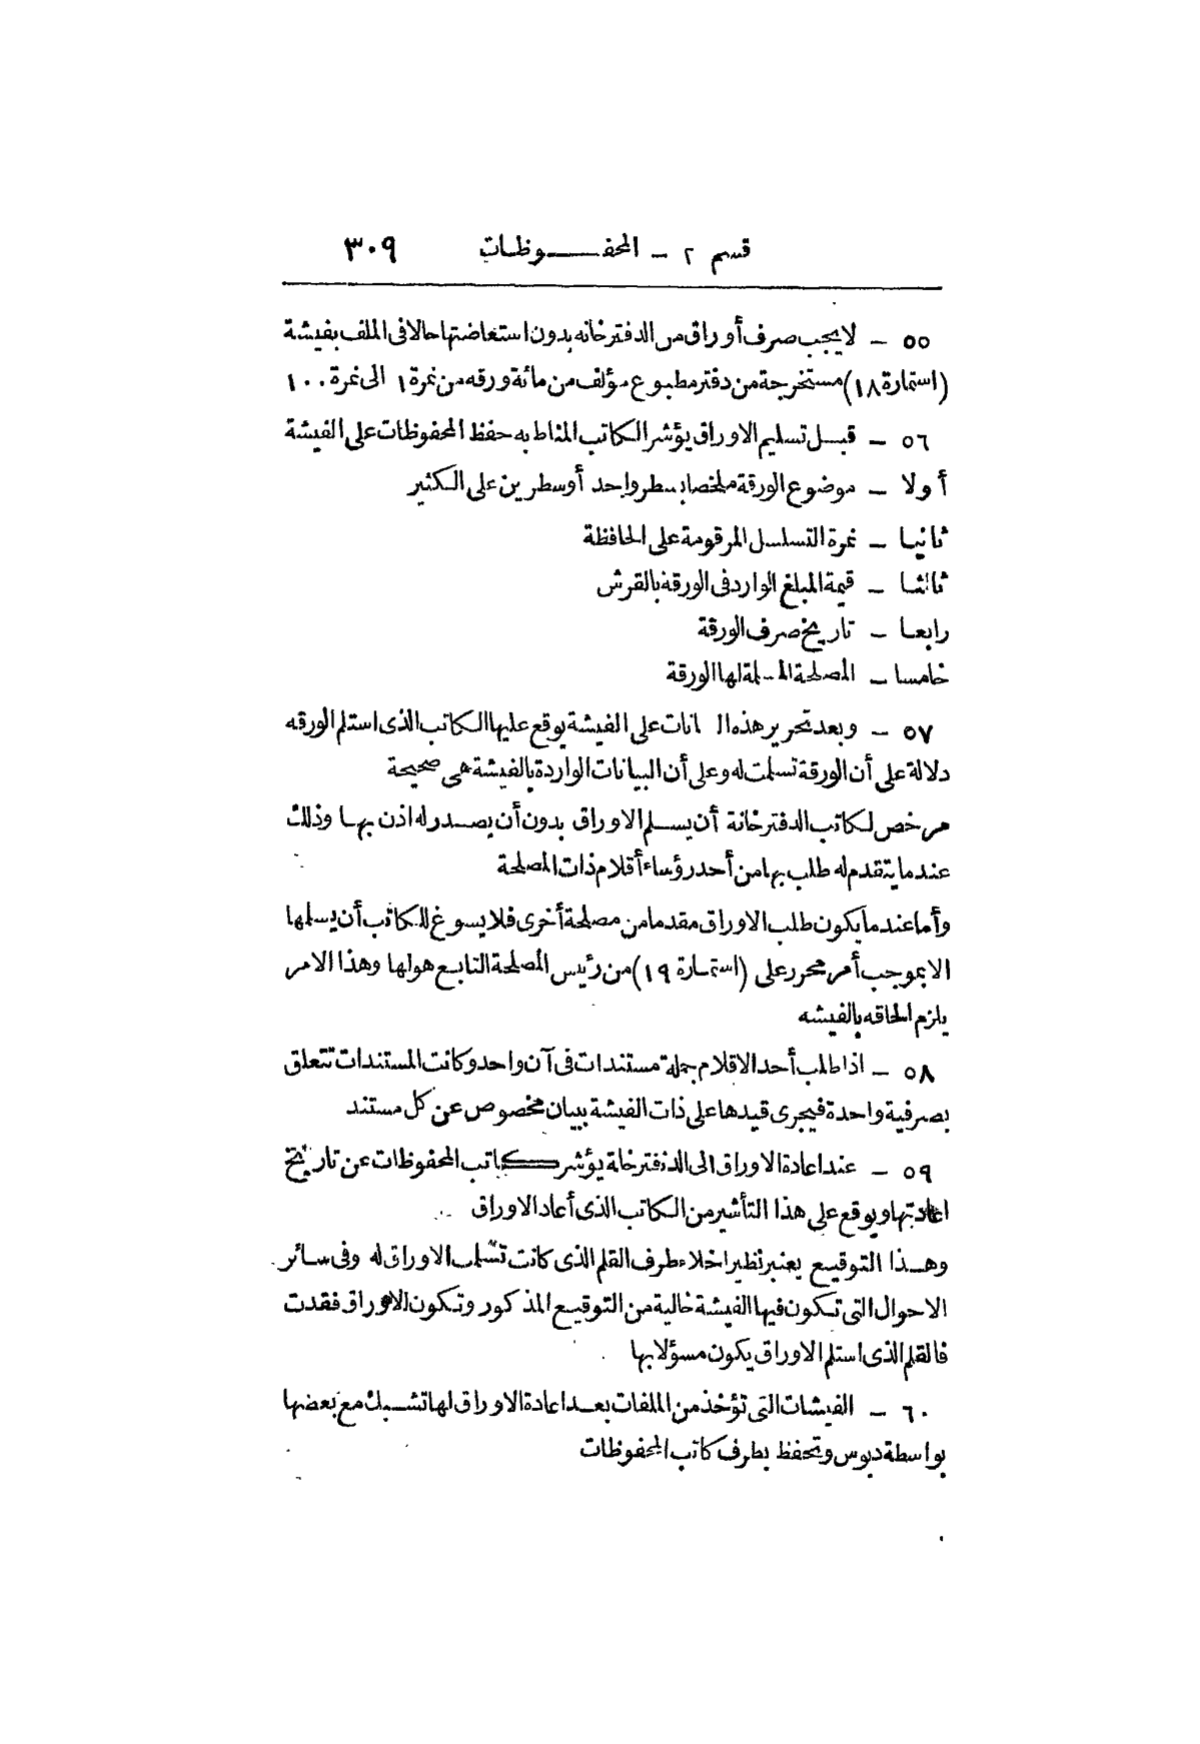 قسم ٢ – المحفوظات ٣٠٩
٥٥ – لايجب صرف أوراق من الدفترخانه بدون استعاضتها حالا فى الملف بفيشة
(استمارة ١٨) مستخرجة من دفتر مطبوع مؤلف من مائة ورقه من نمرة ١ الى نمرة ١٠٠
٥٦ – قبل تسليم الاوراق يؤشر الكاتب المناط به حفظ المحفوظات على الفيشة
أولا – موضوع الورقة ملخصا بسطر واحد أوسطرين على الكثير
ثانيا – نمرة التسلسل المرقومة على الحافظة
ثالثا – قيمة المبلغ الوارد فى الورقة بالقرش
رابعا – تاريخ صرف الورقة
خامسا – المصلحة المسلمة لها الورقة
٥٧ – وبعد تحرير هذه ال انات على الفيشة يوقع عليها الكاتب الذى استلم الورقه
دلالة على أن الورقة تسلمت له وعلى أن البيانات الواردة بالفيشة هى صحيحة
مرخص لكاتب الدفترخانة أن يسلم الاوراق بدون أن يصدر له اذن بها وذلك
عندما يتقدم له طلب بها من أحد رؤساء أقلام ذات المصلحة
وأما عند ما يكون طلب الاوراق مقدما من مصلحة أخرى فلا يسوغ للكاتب أن يسلمها
الا بموجب أمر محرر على (استمارة ١٩) من رئيس المصلحة التابع هولها وهذا الامر
يلزم الحاقه بالفيشه
٥٨ – اذا طلب أحد الاقلام جملة مستندات فى آن واحد وكانت المستندات تتعلق
بصرفية واحدة فيجرى قيدها على ذات الفيشة ببيان مخصوص عن كل مستند
٥٩ – عند اعادة الاوراق الى الدفترخانة يؤشر كاتب المحفوظات عن تاريخ
اعادتها ويوقع على هذا التأشير من الكاتب الذى أعاد الاوراق
وهذا التوقيع يعتبر نظير اخلاء طرف القلم الذى كانت تسلمت الاوراق له وفى سائر
الاحوال التى تكون فيها الفيشة خالية من التوقيع المذكور وتكون الاوراق فقدت
فالقلم الذى استلم الاوراق يكون مسؤلا بها
٦٠ – الفيشات التى تؤخذ من الملفات بعد اعادة الاوراق لها تشبك مع بعضها
بواسطة دبوس وتحفظ بطرف كاتب المحفوظات